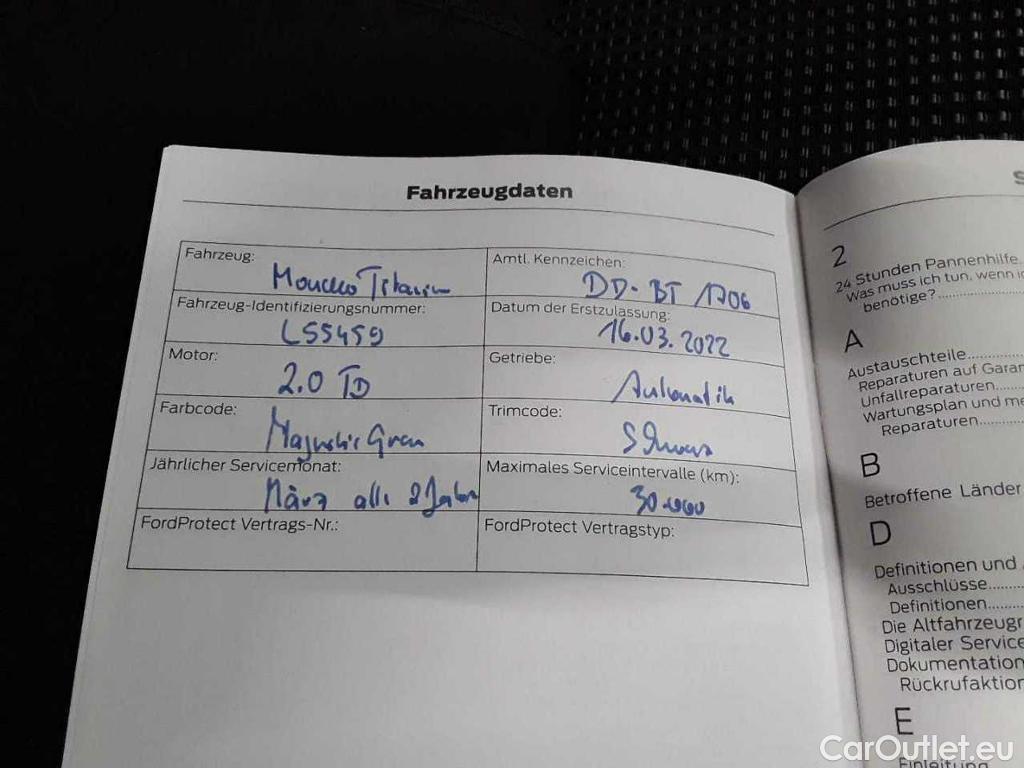 Fahrzeugdaten
Fahrzeug:
Mondeo Titanium
Amtl. Kennzeichen:
DD-BT 1706
Fahrzeug-Identifizierungsnummer:
LS5459
Datum der Erstzulassung:
16.03.2022
Motor:
2.0 TD
Getriebe:
Automatik
Farbcode:
Magnetic Grau
Trimcode:
Schwarz
Jährlicher Servicemonat:
März alle 2 Jahre
Maximales Serviceintervalle (km):
30.000
FordProtect Vertrags-Nr.:
FordProtect Vertragstyp:
S
2
24 Stunden Pannenhilfe
Was muss ich tun, wenn i
benötige?
A
Austauschteile
Reparaturen auf Garan
Unfallreparaturen
Wartungsplan und me
Reparaturen
B
Betroffene Länder
D
Definitionen und
Ausschlüsse
Definitionen
Die Altfahrzeugr
Digitaler Service
Dokumentation
Rückrufaktion
E
Einleitung
CarOutlet.eu